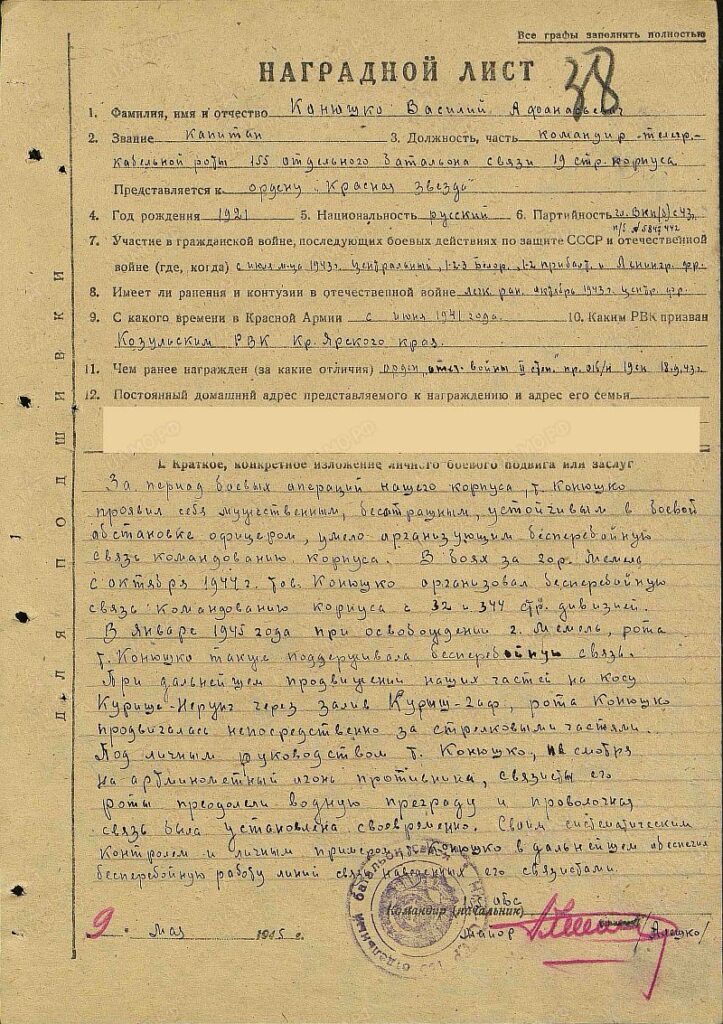 Все графы заполнять полностью
НАГРАДНОЙ ЛИСТ
38
1. Фамилия, имя и отчество Конюшко Василий Афанасьевич
2. Звание капитан 3. Должность, часть командир телегр.-
кабельной роты 155 отдельного батальона связи 19 стр. корпуса
Представляется к ордену „Красная Звезда"
4. Год рождения 1921 5. Национальность русский 6. Партийность чл. ВКП(б) с 43г.
п/б № 5847442
7. Участие в гражданской войне, последующих боевых действиях по защите СССР и отечественной
войне (где, когда) с июля м-ца 1943г. Центральный, 1-2-3 Белор., 1-2 прибалт. и Ленингр. фр.
8. Имеет ли ранения и контузии в отечественной войне легк. ран. октябрь 1943г. центр. фр.
9. С какого времени в Красной Армии с июня 1941 года. 10. Каким РВК призван
Козульским РВК Кр.Ярского края.
11. Чем ранее награжден (за какие отличия) орден „отеч. войны II степ." пр. 19ск 18.9.43г
12. Постоянный домашний адрес представляемого к награждению и адрес его семьи
I. Краткое, конкретное изложение личного боевого подвига или заслуг
За период боевых операций нашего корпуса, т. Конюшко
проявил себя мужественным, бесстрашным, устойчивым в боевой
обстановке офицером, умело организующим бесперебойную
связь командованию корпуса. В боях за гор. Мемель
с октября 1944г. тов. Конюшко организовал бесперебойную
связь командованию корпуса с 32 и 344 стр. дивизией.
В январе 1945 года при освобождении г. Мемель, рота
т. Конюшко также поддерживала бесперебойную связь.
При дальнейшем продвижении наших частей на косу
Курише-Нерунг через залив Куриш-гаф, рота Конюшко
продвигалась непосредственно за стрелковыми частями.
Под личным руководством т. Конюшко, не смотря
на артминометный огонь противника, связисты его
роты преодолели водную преграду и проволочная
связь была установлена своевременно. Своим систематическим
контролем и личным примером т. Конюшко в дальнейшем обеспечил
бесперебойную работу линий связи наведенных его связистами.
155 обс
Командир (начальник)
майор /Алешко/
9 мая 1945 г.
ДЛЯ ПОДШИВКИ